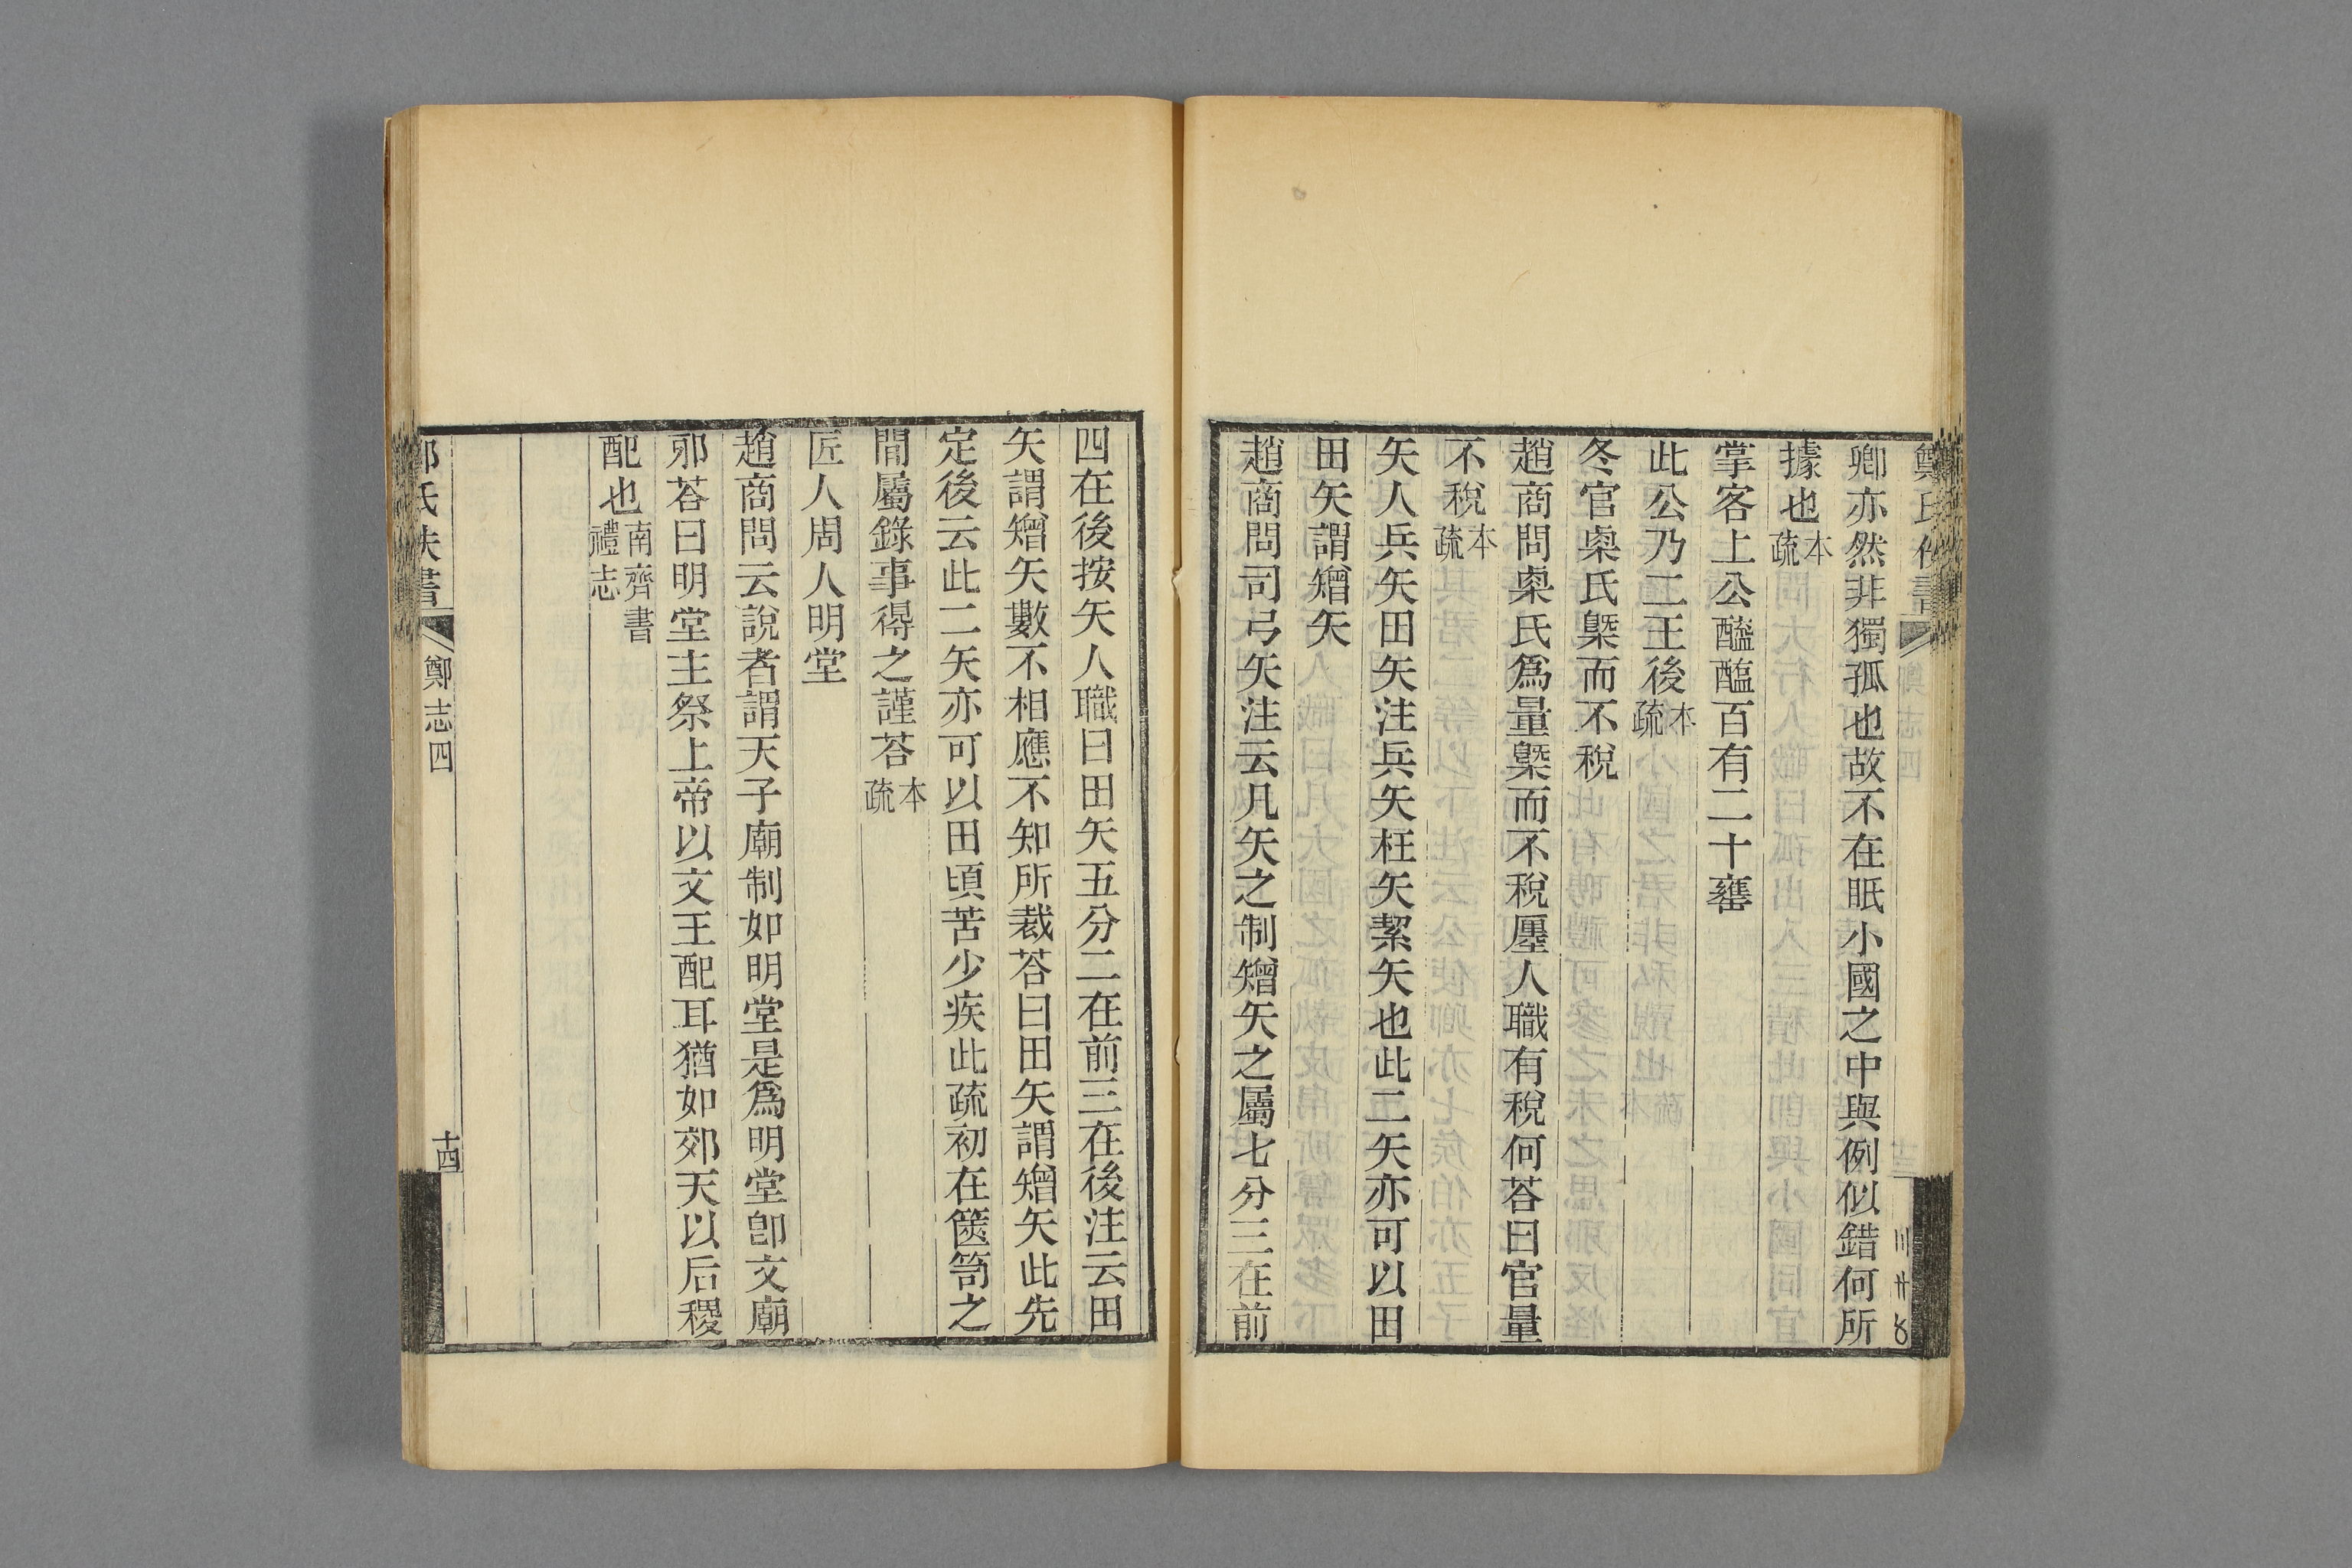 卿亦然非獨孤也故不在眂小國之中與例似錯何所
據也本疏
掌客上公醯醢百有二十罋
此公乃二王後本疏
冬官㮚氏槩而不稅
趙商問㮚氏爲量槩而不稅廛人職有稅何荅曰官量
不稅本疏
矢人兵矢田矢注兵矢枉矢絜矢也此二矢亦可以田
田矢謂矰矢
趙商問司弓矢注云凡矢之制矰矢之屬七分三在前
四在後按矢人職曰田矢五分二在前三在後注云田
矢謂矰矢數不相應不知所裁荅曰田矢謂矰矢此先
定後云此二矢亦可以田頃苦少疾此疏初在篋笥之
閒屬錄事得之謹荅本疏
匠人周人明堂
趙商問云說者謂天子廟制如明堂是爲明堂卽文廟
邪荅曰明堂主祭上帝以文王配耳猶如郊天以后稷
配也南齊書禮志
鄭氏佚書
鄭志四
十四